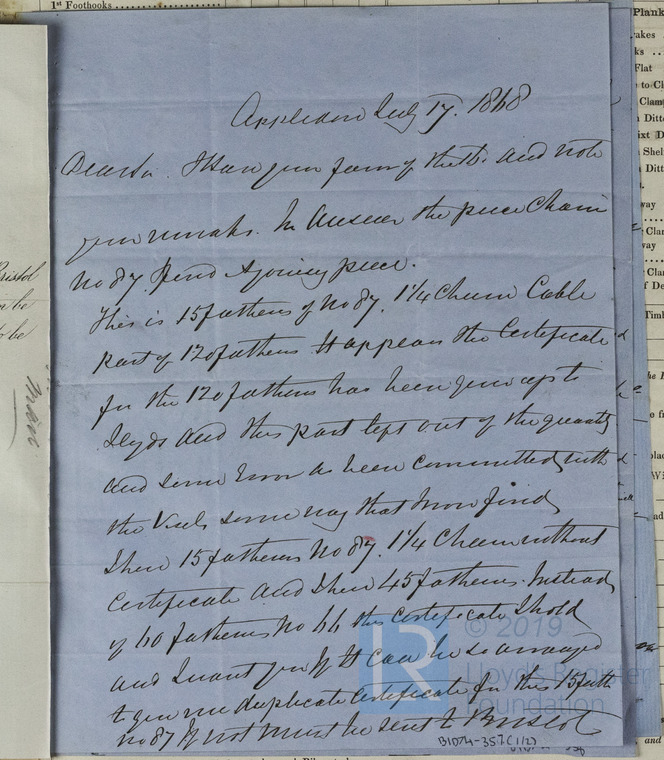 1st Foothooks
Appledore July 17. 1868
Dear Sir. I have your favour of the 16. and note
your remarks. In Answer the piece Chain
No 87 I find a joining piece.
This is 15 fathoms of No 87. 1 1/4 Chain Cable
part of 120 fathoms. It appears the Certificate
for the 120 fathoms has been given up to
Lloyds and this part left out of the quantity
and some Error as been committed with
the Vessels some way that I now find
I have 15 fathoms No 87. 1 1/4 Chain without
Certificate and I have 45 fathoms. Instead
of 60 fathoms No 66 this Certificate I hold
and I want you If It can be so arranged
to give me duplicate Certificate for this 15 fath
No 87 If not must be sent to Bristol
Bristol
to be
© 2019
Lloyds Register
Foundation
LR
Plank
Flat
Ditto
way